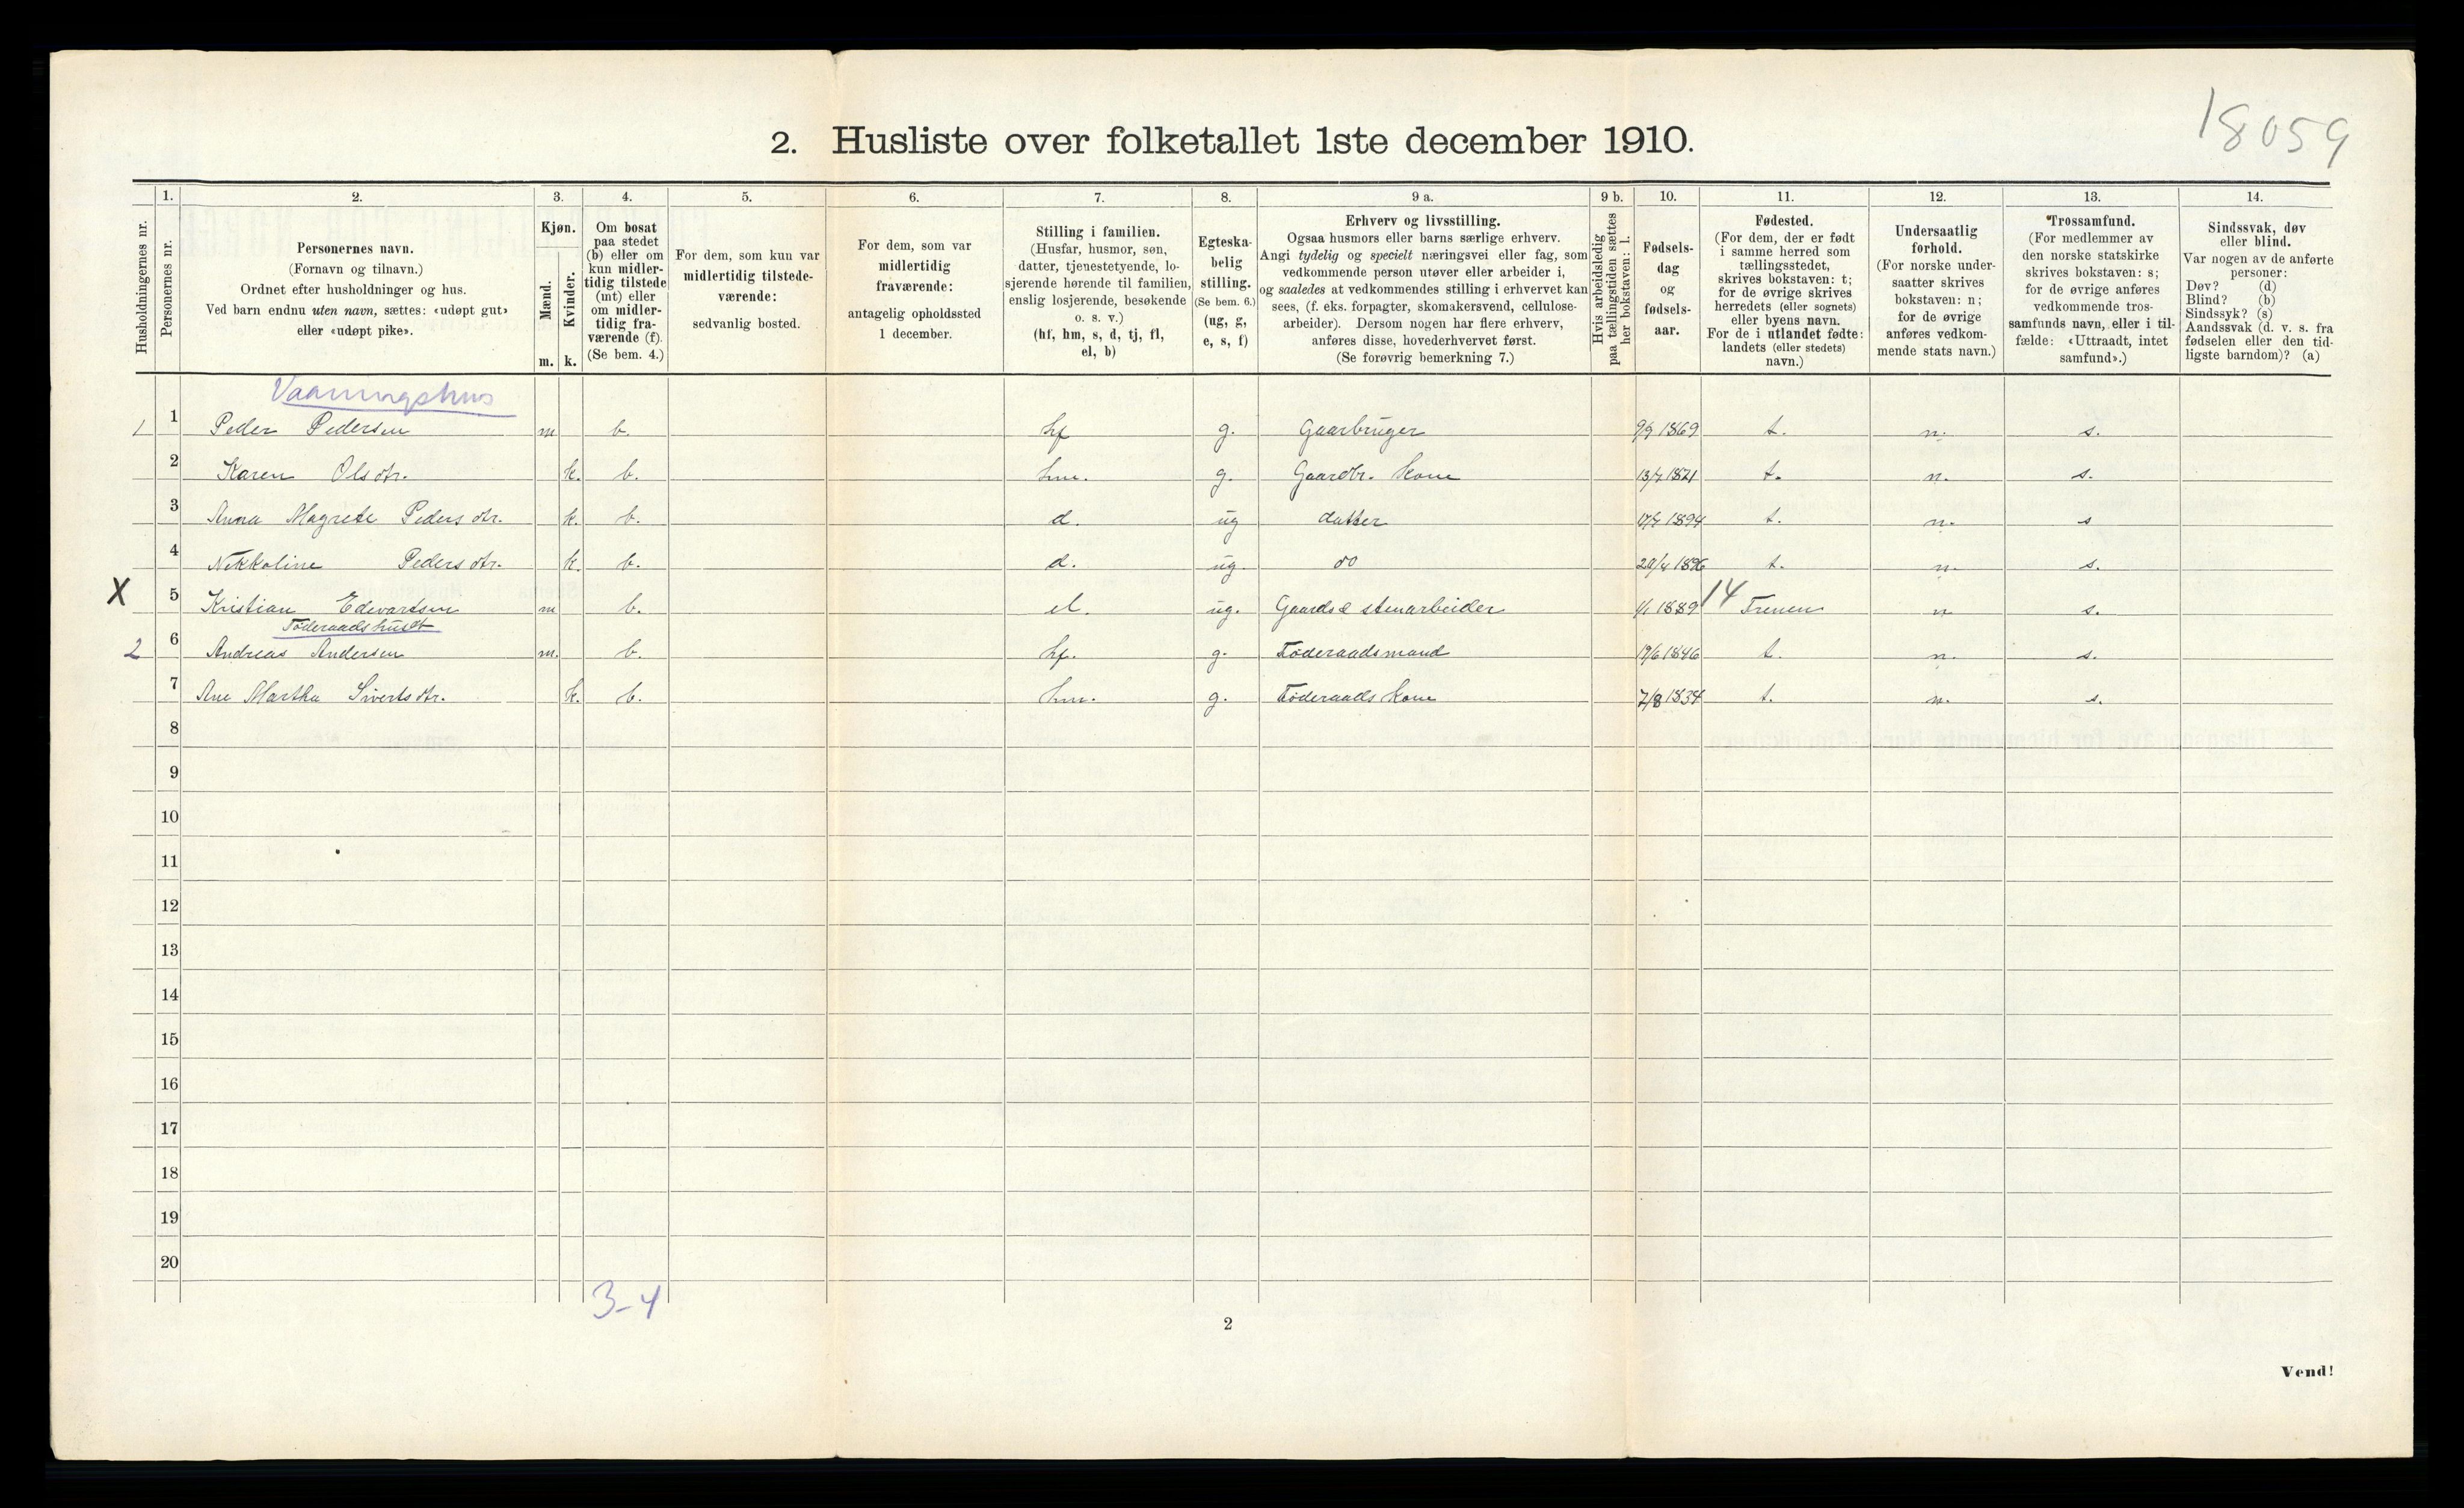 18059
2. Husliste over folketallet 1ste december 1910.
Husholdningernes nr.
1.
Personernes nr.
2.
Personernes navn.
(Fornavn og tilnavn.)
Ordnet efter husholdninger og hus.
Ved barn endnu uten navn, sættes: «udøpt gut»
eller «udøpt pike».
3.
Kjøn.
Mænd.
m.
Kvinder.
k.
4.
Om bosat
paa stedet
(b) eller om
kun midler-
tidig tilstede
(mt) eller
om midler-
tidig fra-
værende (f).
(Se bem. 4.)
5.
For dem, som kun var
midlertidig tilstede-
værende:
sedvanlig bosted.
6.
For dem, som var
midlertidig
fraværende:
antagelig opholdssted
1 december.
7.
Stilling i familien.
(Husfar, husmor, søn,
datter, tjenestetyende, lo-
sjerende hørende til familien,
enslig losjerende, besøkende
o. s. v.)
(hf, hm, s, d, tj, fl,
el, b)
8.
Egteska-
belig
stilling.
(Se bem. 6.)
(ug, g,
e, s, f)
9 a.
Erhverv og livsstilling.
Ogsaa husmors eller barns særlige erhverv.
Angi tydelig og specielt næringsvei eller fag, som
vedkommende person utøver eller arbeider i,
og saaledes at vedkommendes stilling i erhvervet kan
sees, (f. eks. forpagter, skomakersvend, cellulose-
arbeider). Dersom nogen har flere erhverv,
anføres disse, hovederhvervet først.
(Se forøvrig bemerkning 7.)
9 b.
Hvis arbeidsledig
paa tællingstiden sættes
her bokstaven: l.
10.
Fødsels-
dag
og
fødsels-
aar.
11.
Fødested.
(For dem, der er født
i samme herred som
tællingsstedet,
skrives bokstaven: t;
for de øvrige skrives
herredets (eller sognets)
eller byens navn.
For de i utlandet fødte:
landets (eller stedets)
navn.)
12.
Undersaatlig
forhold.
(For norske under-
saatter skrives
bokstaven: n;
for de øvrige
anføres vedkom-
mende stats navn.)
13.
Trossamfund.
(For medlemmer av
den norske statskirke
skrives bokstaven: s;
for de øvrige anføres
vedkommende tros-
samfunds navn, eller i til-
fælde: «Uttraadt, intet
samfund».)
14.
Sindssvak, døv
eller blind.
Var nogen av de anførte
personer:
Døv? (d)
Blind? (b)
Sindssyk? (s)
Aandssvak (d. v. s. fra
fødselen eller den tid-
ligste barndom)? (a)
Vaaningshus
1 1 Peder Pedersen m b. hf g. Gaarbruger 9/9 1869 t. n. s.
2 Karen Olsdtr. k. b. hm. g. Gaardbr. Kone 13/7 1821 t. n. s.
3 Anna Magrete Pedersdtr. k. b. d. ug datter 1894 t. n. s
4 Nikkoline Pedersdtr. k. b. d. ug do 20/4 1896 t. n. s.
X 5 Kristian Edevartsen m b. el. ug. Gaards & stenarbeider 1/1 1889 14 Trenen n s.
Føderaadshuset
2 6 Andreas Andersen m. b. hf. g. Føderaadsmand 19/6 1846 t. n. s.
7 Ane Martha Sivertsdtr. k. b. hm. g. Føderaads Kone 7/8 1834 t. n. s.
8
9
10
11
12
13
14
15
16
17
18
19
20
3-4
2
Vend!